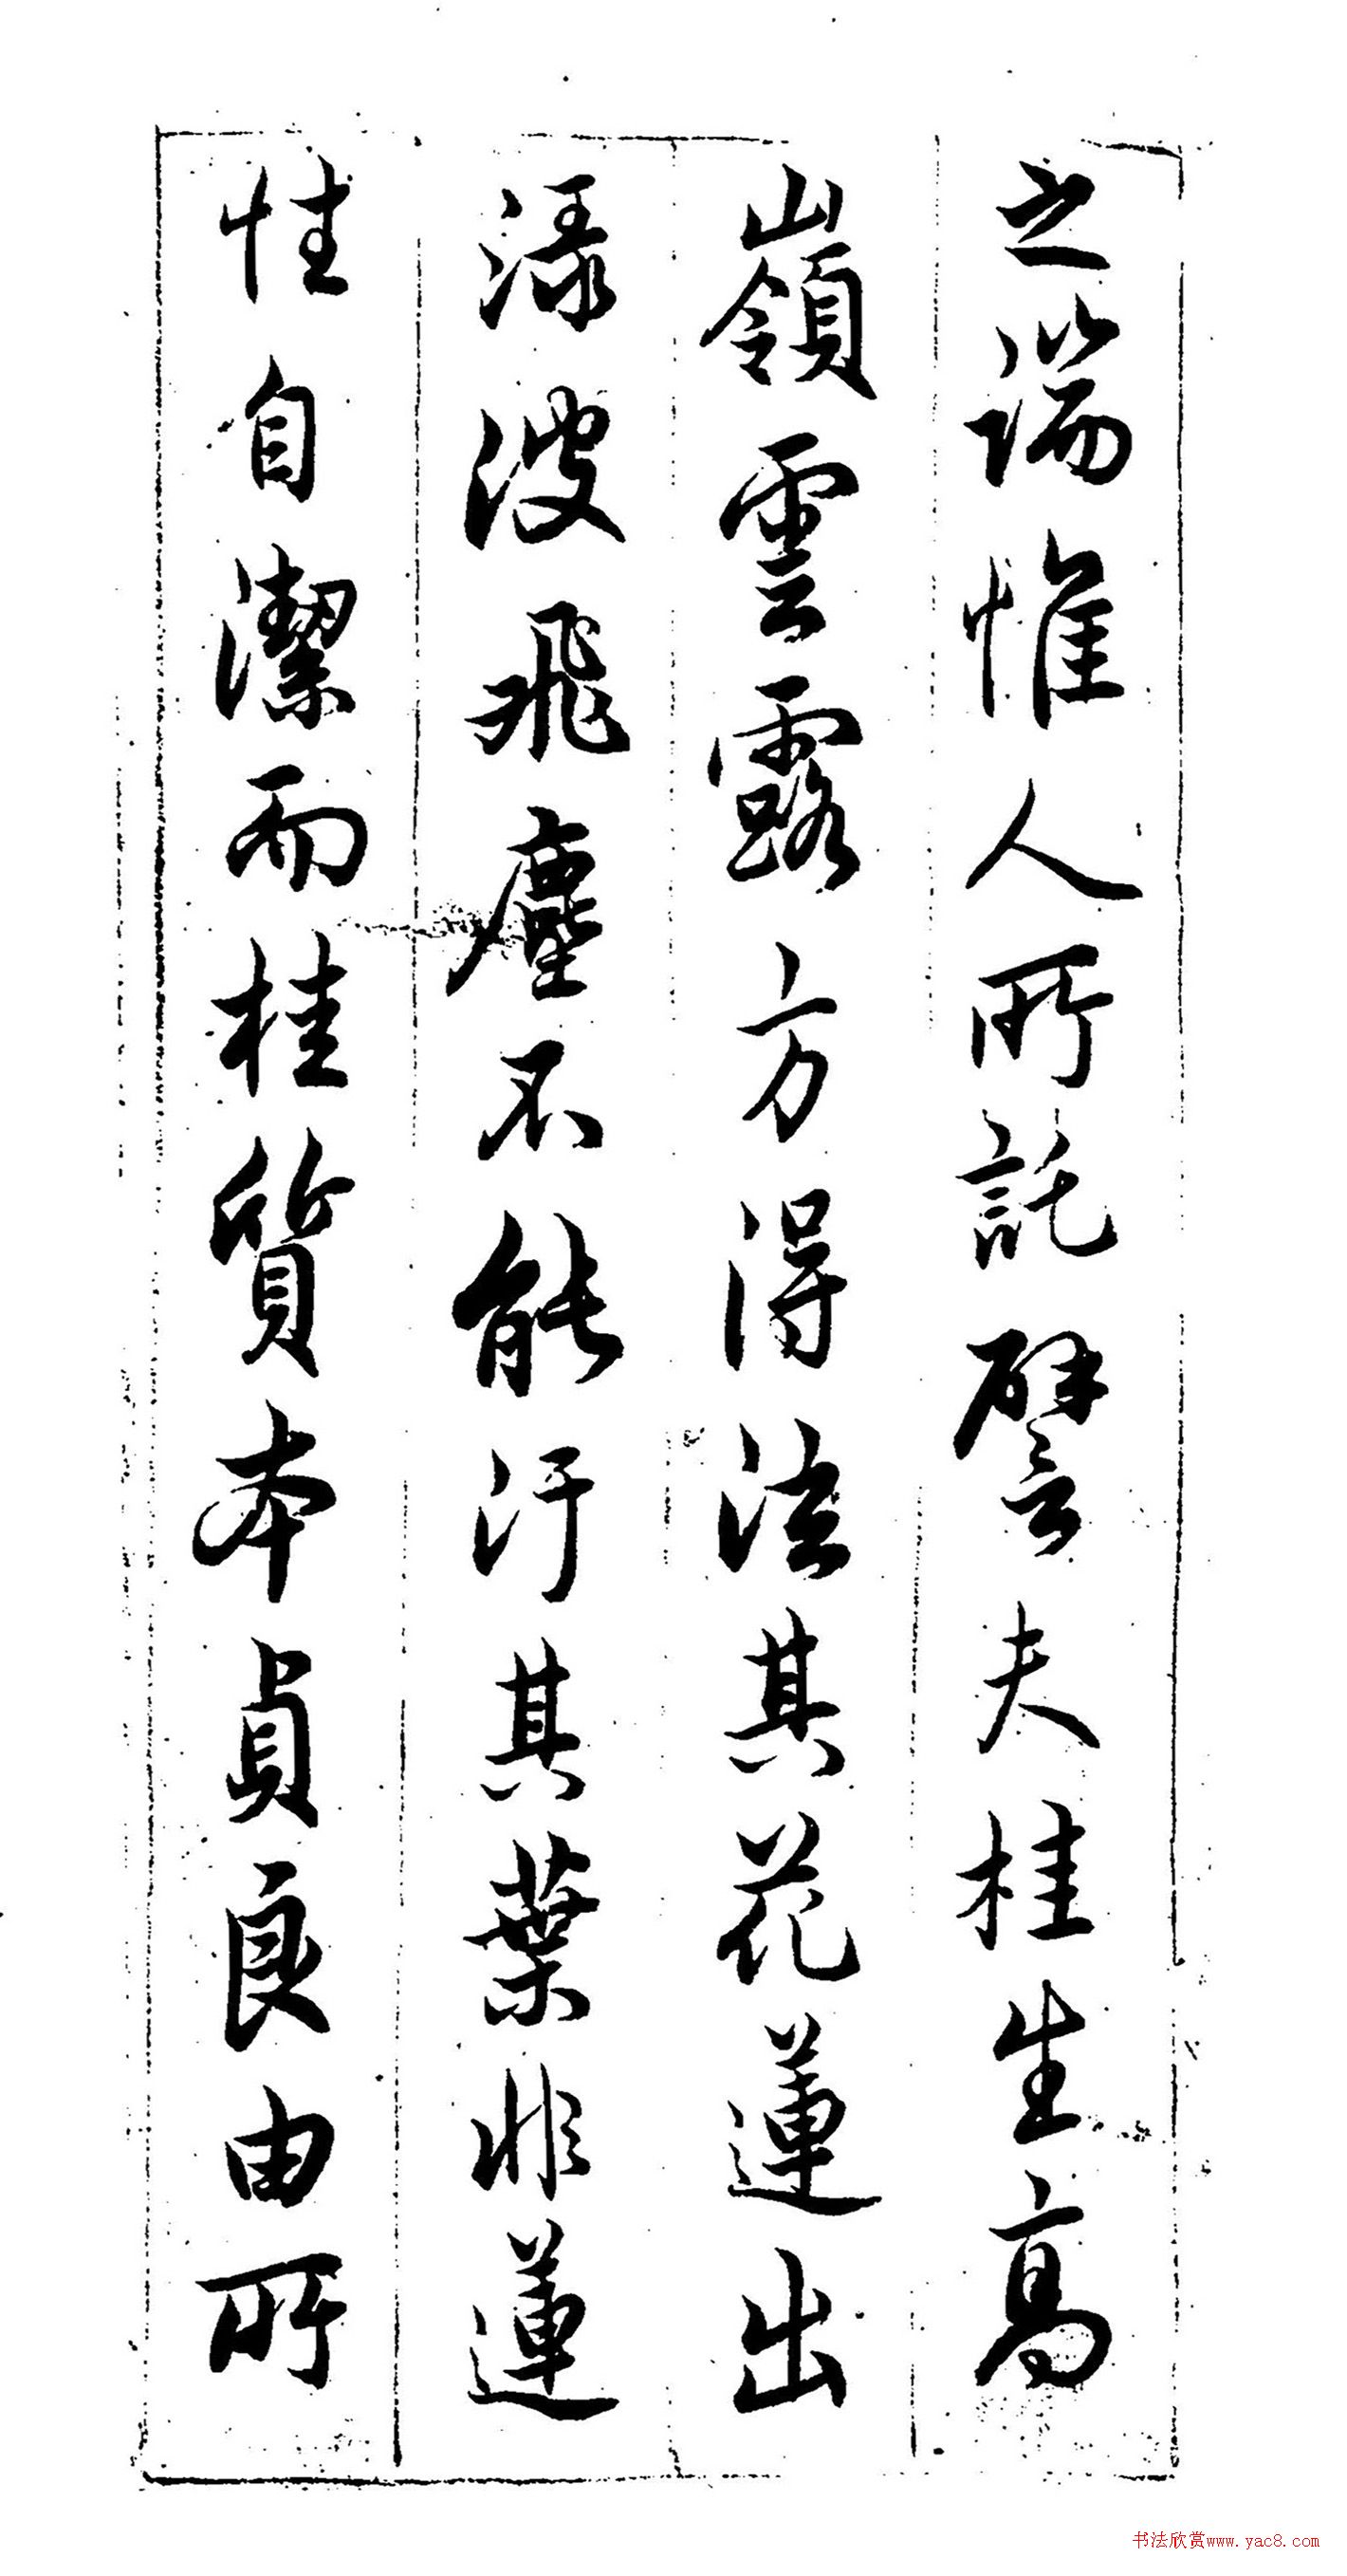 之端惟人所託譬夫桂生高
嶺雲露方得泫其花蓮出
淥波飛塵不能汙其葉非蓮
性自潔而桂質本貞良由所
书法欣赏www.yac8.com